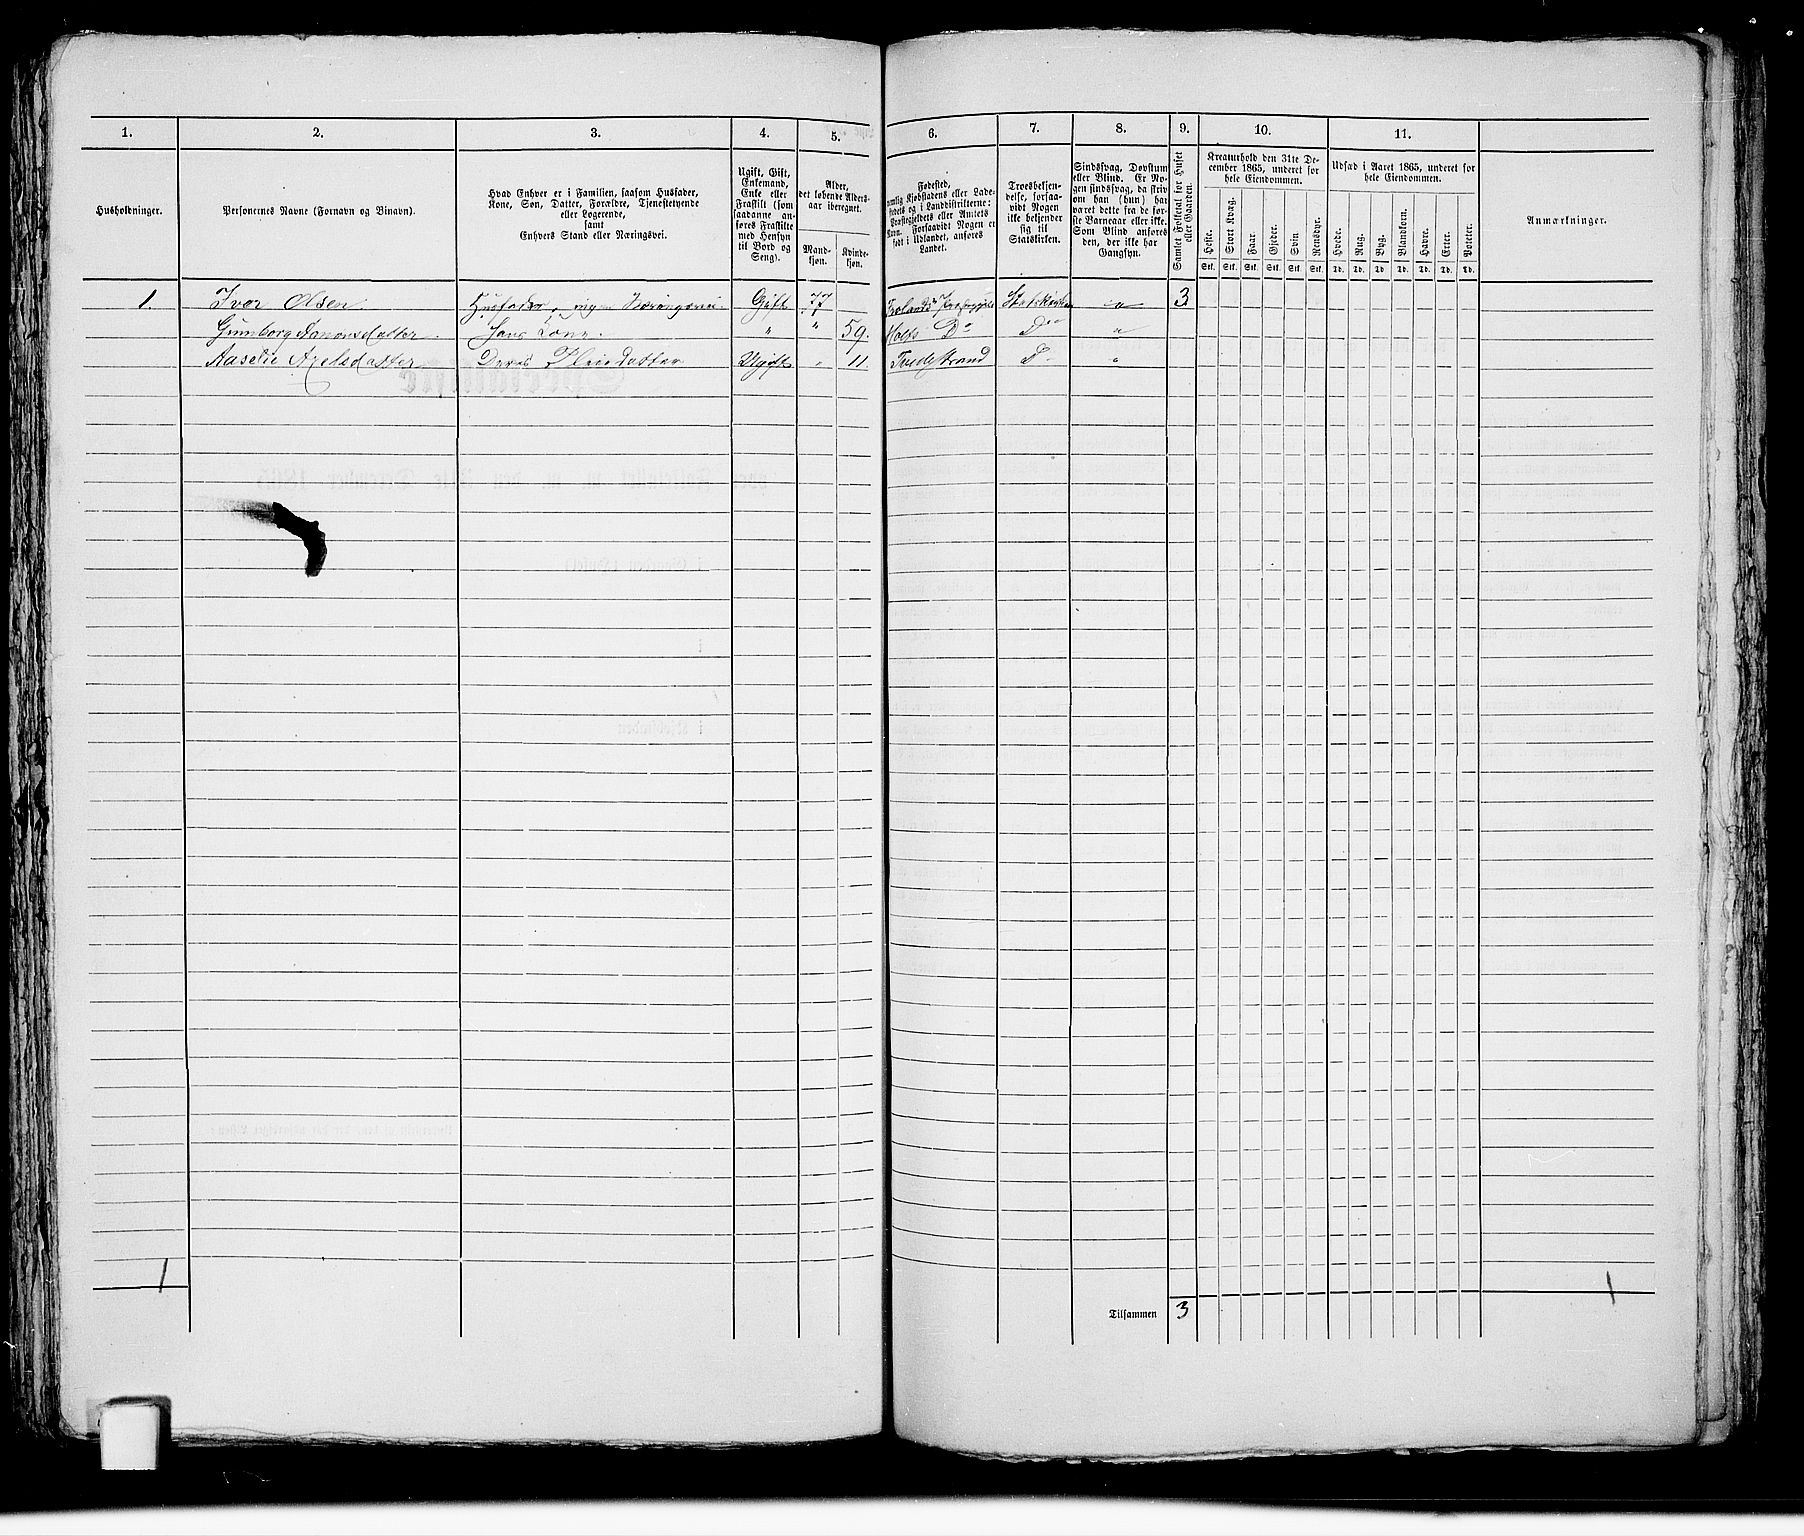 1. 2. 3. 4. 5. 6. 7. 8. 9. 10. 11.
Husholdninger.
Personernes Navne (Fornavn og Binavn).
Hvad Enhver er i Familien, saasom Husfader,
Kone, Søn, Datter, Forældre, Tjenestetyende
eller Logerende,
samt
Enhvers Stand eller Næringsvei.
Ugift, Gift,
Enkemand,
Enke eller
Fraskilt (som
saadanne an-
føres Fraskilte
med Hensyn
til Bord og
Seng).
Alder,
det løbende Alders-
aar iberegnet.
Mand-
kjøn.
Kvinde-
kjøn.
Fødested,
nemlig Kjøbstadens eller Lade-
stedets og i Landdistrikterne:
Præstegjeldets eller Amtets
Navn. Forsaavidt Nogen er
født i Udlandet, anføres
Landet.
Troesbekjen-
delse, forsaa-
vidt Nogen
ikke bekjender
sig til
Statskirken.
Sindssvag, Døvstum
eller Blind. Er No-
gen sindssvag, da skriv
om han (hun) har
været dette fra de før-
ste Barneaar eller ikke.
Som Blind anføres
den, der ikke har
Gangsyn.
Samlet Folketal for Huset
eller Gaarden.
Kreaturhold den 31te De-
cember 1865, underet for
hele Eiendommen.
Heste. Stort Kvæg. Faar. Gjeder. Svin. Rensdyr.
Stk. Stk. Stk. Stk. Stk. Stk.
Udsæd i Aaret 1865, underet for
hele Eiendommen.
Hvede. Rug. Byg. Blandkorn. Havre. Erter. Poteter.
Td. Td. Td. Td. Td. Td. Td.
Anmærkninger.
1. Ivar Olsen Husfader, ingen Næringsvei Gift 77 Frolands Statskirken " 3
Gunborg Hans Kone " " 59. Holts Do Do "
Aaselie Axelsdatter Deres Pleiedatter Ugift " 11. Tvedestrand Do "
1
Tilsammen 3